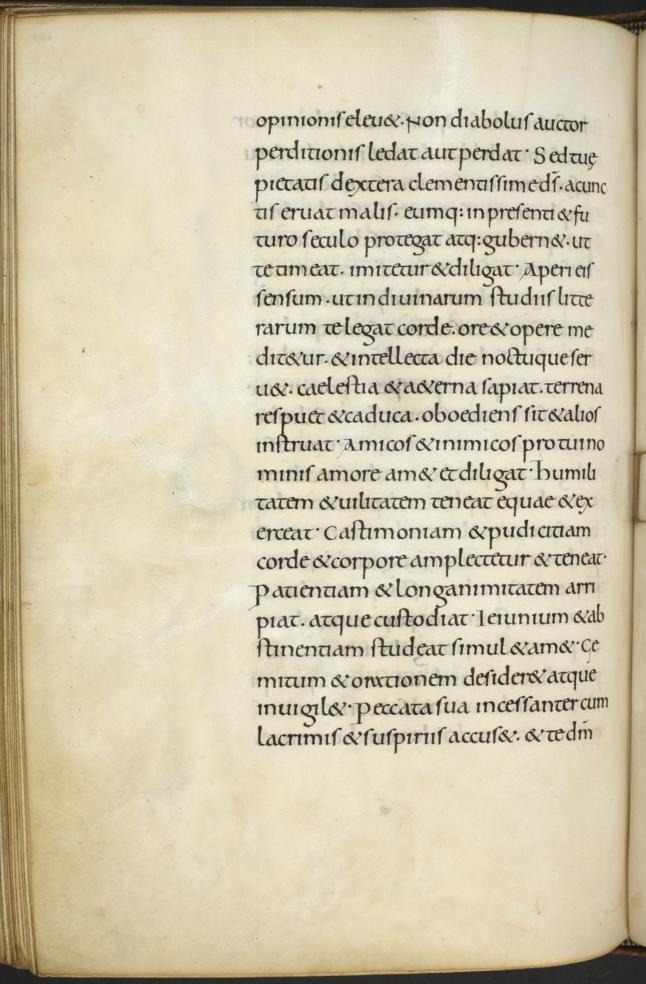 opinionis eleu&. Non diabolus auctor
perditionis ledat aut perdat. Sed tuę
pietatis dextera clementissime ds̄. a cunc
tis eruat malis. eumq: in presenti & fu
turo seculo protegat atq: gubern&. ut
te timeat. imitetur & diligat. Aperi eis
sensum. ut in diuinarum studiis litte
rarum te legat corde. ore & opere me
dit&ur. & intellecta die noctuque ser
u&. caelestia & a&erna sapiat. terrena
respuet & caduca. oboediens sit & alios
instruat. Amicos & inimicos pro tui no
minis amore am& et diligat. humili
tatem & uilitatem teneat equae & ex
erceat. Castimoniam & pudicitiam
corde & corpore amplectetur & teneat.
Patientiam & longanimitatem arri
piat. atque custodiat. Ieiunium & ab
stinentiam studeat simul & am&. Ge
mitum & orationem desider& atque
inuigil&. Peccata sua incessanter cum
lacrimis & suspiriis accus&. & te dn̄i